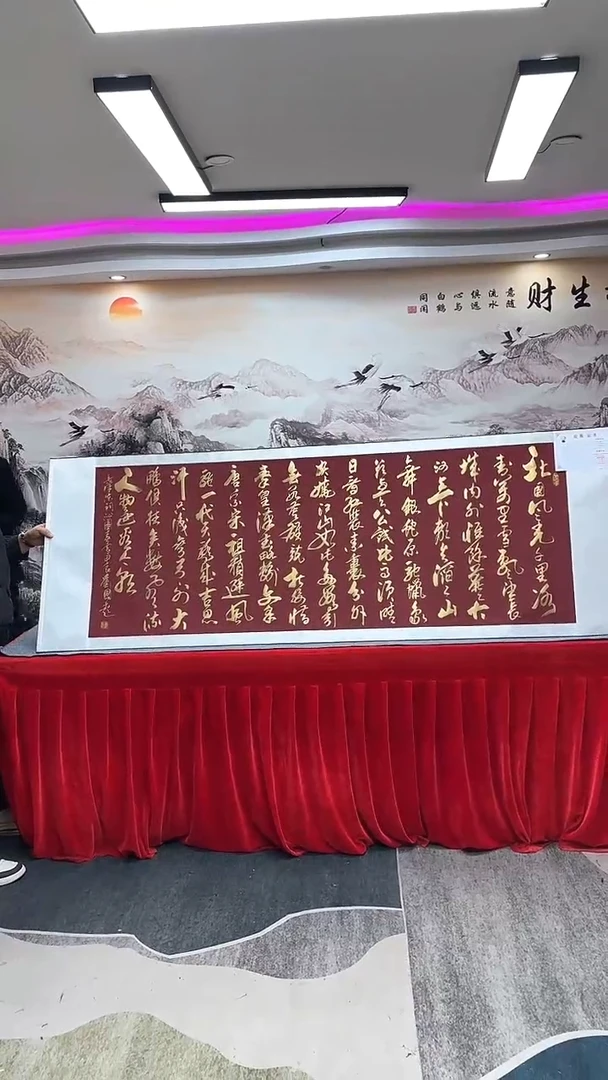 生财
意随
流水
俱远
心与
白鹤
同闲
北国风光千里冰
封万里雪飘望长
城内外惟余莽莽大
河上下顿失滔滔山
舞银蛇原驰蜡象
欲与天公试比高须晴
日看红装素裹分外
妖娆江山如此多娇引
无数英雄竞折腰惜
秦皇汉武略输文采
唐宗宋祖稍逊风
骚一代天骄成吉思
汗只识弯弓射大
雕俱往矣数风流
人物还看今朝